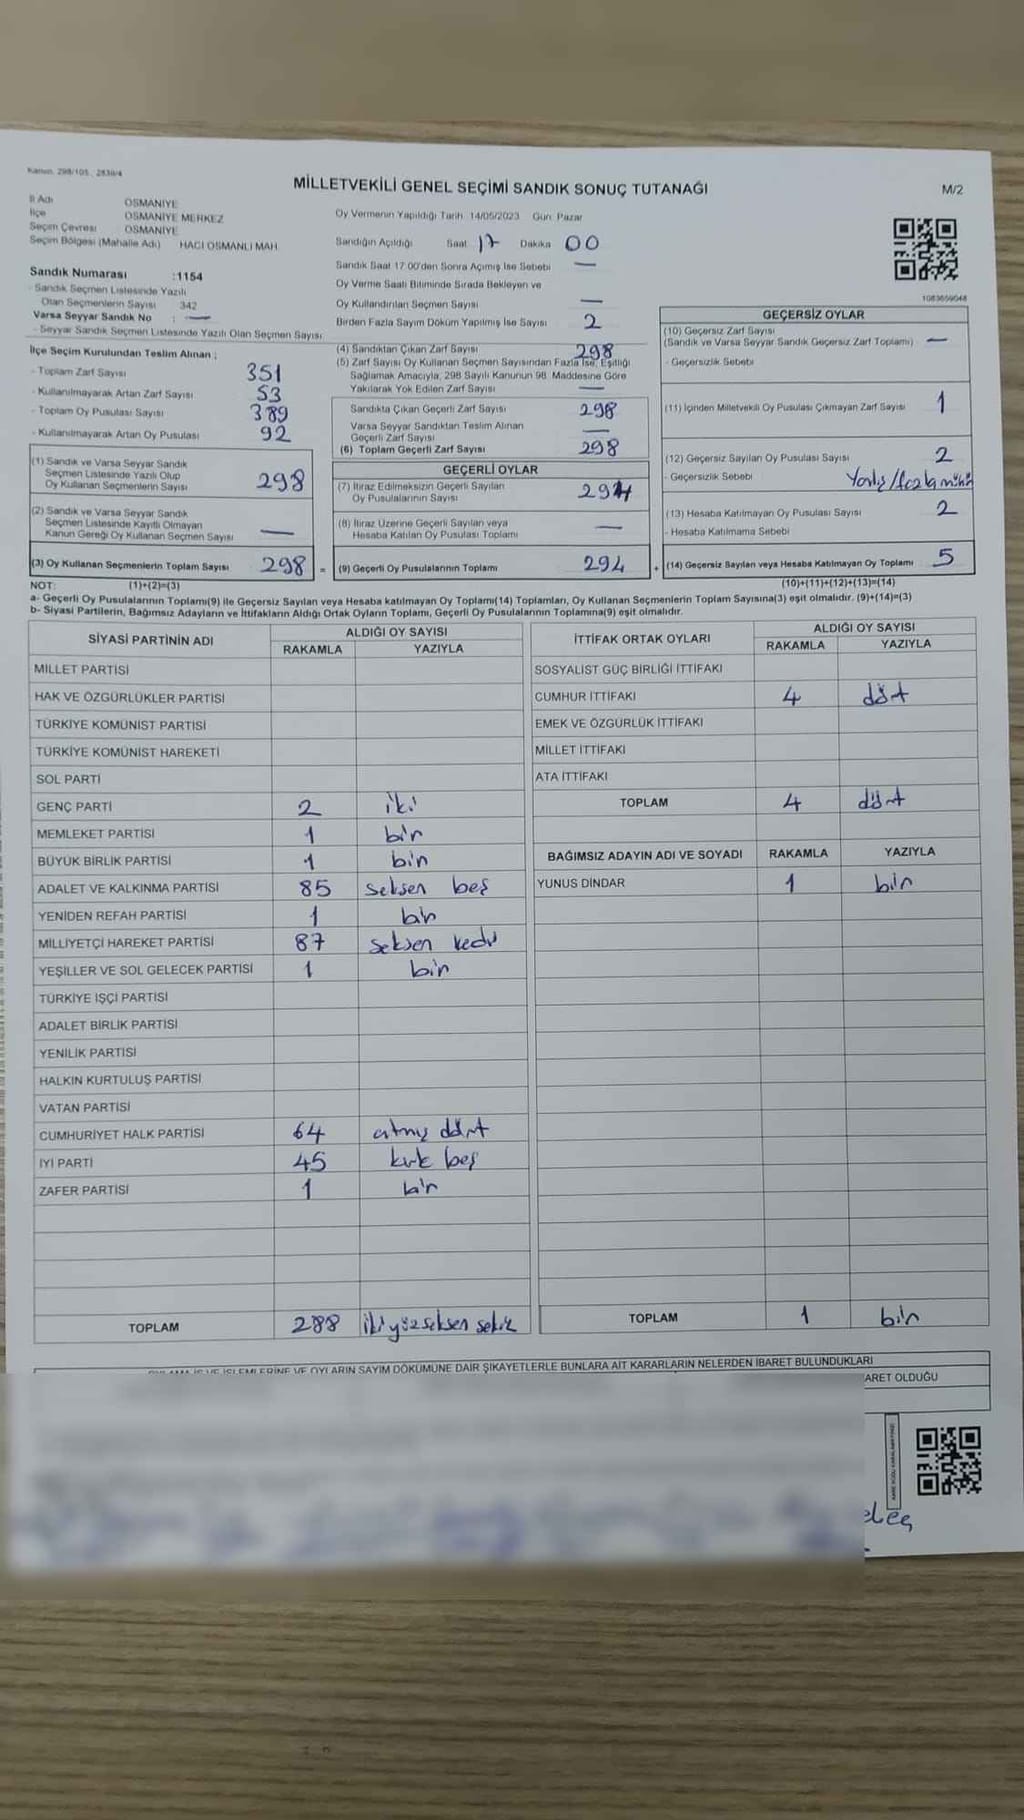 Kanun: 298/105, 2839/4
MİLLETVEKİLİ GENEL SEÇİMİ SANDIK SONUÇ TUTANAĞI
M/2
İl Adı OSMANİYE
İlçe OSMANİYE MERKEZ
Seçim Çevresi OSMANİYE
Seçim Bölgesi (Mahalle Adı) HACI OSMANLI MAH.
Sandık Numarası :1154
- Sandık Seçmen Listesinde Yazılı
Olan Seçmenlerin Sayısı 342
Varsa Seyyar Sandık No : —
- Seyyar Sandık Seçmen Listesinde Yazılı Olan Seçmen Sayısı
Oy Vermenin Yapıldığı Tarih: 14/05/2023 Gün: Pazar
Sandığın Açıldığı Saat 17 Dakika 00
Sandık Saat 17:00'den Sonra Açımış İse Sebebi —
Oy Verme Saati Bitiminde Sırada Bekleyen ve
Oy Kullandırılan Seçmen Sayısı —
Birden Fazla Sayım Döküm Yapılmış İse Sayısı 2
1083659048
İlçe Seçim Kurulundan Teslim Alınan ;
- Toplam Zarf Sayısı 351
- Kullanılmayarak Artan Zarf Sayısı 53
- Toplam Oy Pusulası Sayısı 389
- Kullanılmayarak Artan Oy Pusulası 92
(1) Sandık ve Varsa Seyyar Sandık
Seçmen Listesinde Yazılı Olup
Oy Kullanan Seçmenlerin Sayısı 298
(2) Sandık ve Varsa Seyyar Sandık
Seçmen Listesinde Kayıtlı Olmayan
Kanun Gereği Oy Kullanan Seçmen Sayısı —
(3) Oy Kullanan Seçmenlerin Toplam Sayısı 298 =
(4) Sandıktan Çıkan Zarf Sayısı 298
(5) Zarf Sayısı Oy Kullanan Seçmen Sayısından Fazla İse, Eşitliği
Sağlamak Amacıyla, 298 Sayılı Kanunun 98. Maddesine Göre
Yakılarak Yok Edilen Zarf Sayısı —
Sandıkta Çıkan Geçerli Zarf Sayısı 298
Varsa Seyyar Sandıktan Teslim Alınan
Geçerli Zarf Sayısı —
(6) Toplam Geçerli Zarf Sayısı 298
GEÇERLİ OYLAR
(7) İtiraz Edilmeksizin Geçerli Sayılan
Oy Pusulalarının Sayısı 294
(8) İtiraz Üzerine Geçerli Sayılan veya
Hesaba Katılan Oy Pusulası Toplamı —
(9) Geçerli Oy Pusulalarının Toplamı 294 +
GEÇERSİZ OYLAR
(10) Geçersiz Zarf Sayısı
(Sandık ve Varsa Seyyar Sandık Geçersiz Zarf Toplamı) —
- Geçersizlik Sebebi
(11) İçinden Milletvekili Oy Pusulası Çıkmayan Zarf Sayısı 1
(12) Geçersiz Sayılan Oy Pusulası Sayısı 2
- Geçersizlik Sebebi
(13) Hesaba Katılmayan Oy Pusulası Sayısı 2
- Hesaba Katılmama Sebebi
(14) Geçersiz Sayılan veya Hesaba Katılmayan Oy Toplamı 5
NOT: (1)+(2)=(3) (10)+(11)+(12)+(13)=(14)
a- Geçerli Oy Pusulalarının Toplamı(9) ile Geçersiz Sayılan veya Hesaba katılmayan Oy Toplamı(14) Toplamları, Oy Kullanan Seçmenlerin Toplam Sayısına(3) eşit olmalıdır. (9)+(14)=(3)
b- Siyasi Partilerin, Bağımsız Adayların ve İttifakların Aldığı Ortak Oyların Toplamı, Geçerli Oy Pusulalarının Toplamına(9) eşit olmalıdır.
SİYASİ PARTİNİN ADI ALDIĞI OY SAYISI
RAKAMLA YAZIYLA
MİLLET PARTİSİ
HAK VE ÖZGÜRLÜKLER PARTİSİ
TÜRKİYE KOMÜNİST PARTİSİ
TÜRKİYE KOMÜNİST HAREKETİ
SOL PARTİ
GENÇ PARTİ 2 iki
MEMLEKET PARTİSİ 1 bir
BÜYÜK BİRLİK PARTİSİ 1 bir
ADALET VE KALKINMA PARTİSİ 85 seksen beş
YENİDEN REFAH PARTİSİ 1 bir
MİLLİYETÇİ HAREKET PARTİSİ 87 seksen yedi
YEŞİLLER VE SOL GELECEK PARTİSİ 1 bir
TÜRKİYE İŞÇİ PARTİSİ
ADALET BİRLİK PARTİSİ
YENİLİK PARTİSİ
HALKIN KURTULUŞ PARTİSİ
VATAN PARTİSİ
CUMHURİYET HALK PARTİSİ 64 atmış dört
İYİ PARTİ 45 kırk beş
ZAFER PARTİSİ 1 bir
TOPLAM 288 iki yüz seksen sekiz
İTTİFAK ORTAK OYLARI ALDIĞI OY SAYISI
RAKAMLA YAZIYLA
SOSYALİST GÜÇ BİRLİĞİ İTTİFAKI
CUMHUR İTTİFAKI 4 dört
EMEK VE ÖZGÜRLÜK İTTİFAKI
MİLLET İTTİFAKI
ATA İTTİFAKI
TOPLAM 4 dört
BAĞIMSIZ ADAYIN ADI VE SOYADI RAKAMLA YAZIYLA
YUNUS DİNDAR 1 bir
TOPLAM 1 bir
İŞLEMLERİNE VE OYLARIN SAYIM DÖKÜMÜNE DAİR ŞİKAYETLERLE BUNLARA AİT KARARLARIN NELERDEN İBARET BULUNDUKLARI
ARET OLDUĞU